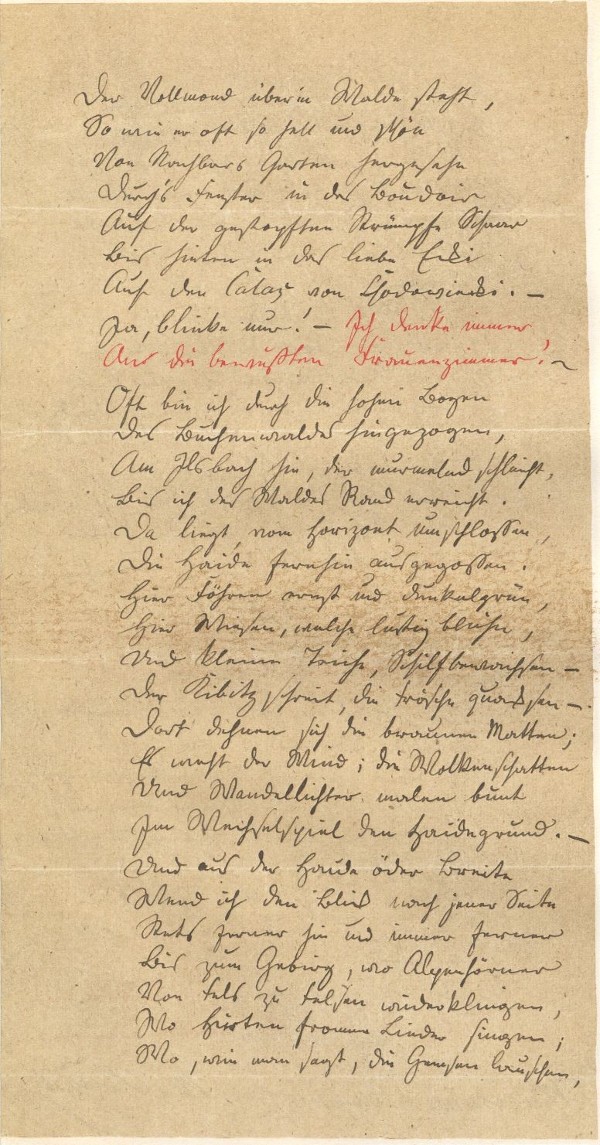 Der Vollmond über'm Walde steht,
So wie er oft so hell und schön
Von Nachbars Garten hergesehn
Durch's Fenster in das Boudoir
Auf der gestopften Strümpfe Schaar
Bis hinten in das liebe Ecki
Auf den Calas von Chodowiecki. –
Ja, blinke nur! – Ich denke immer
An die bewußten Frauenzimmer! –
Oft bin ich durch die hohen Bogen
Des Buchenwaldes hingezogen,
Am Ilsbach hin, der murmelnd schleicht,
Bis ich des Waldes Rand erreicht.
Da liegt, vom Horizont umschlossen,
Die Haide fernhin ausgegossen.
Hier Föhren ernst und dunkelgrün,
Hier Wiesen, welche lustig blühn,
Und kleine Teiche, Schilfbewachsen –
Der Kibitz schreit, die Frösche quacksen –
Dort dehnen sich die braunen Matten;
Es weht der Wind; die Wolkenschatten
Und Wandellichter malen bunt
Im Wechselspiel den Haidegrund. –
Und aus der Haide öder Breite
Wend ich den Blick nach jener Seite
Stets ferner hin und immer ferner
Bis zum Gebirg, wo Alpenhörner
Von Fels zu Felsen wiederklingen,
Wo Hirten fromme Lieder singen;
Wo, wie man sagt, die Gemsen lauschen,